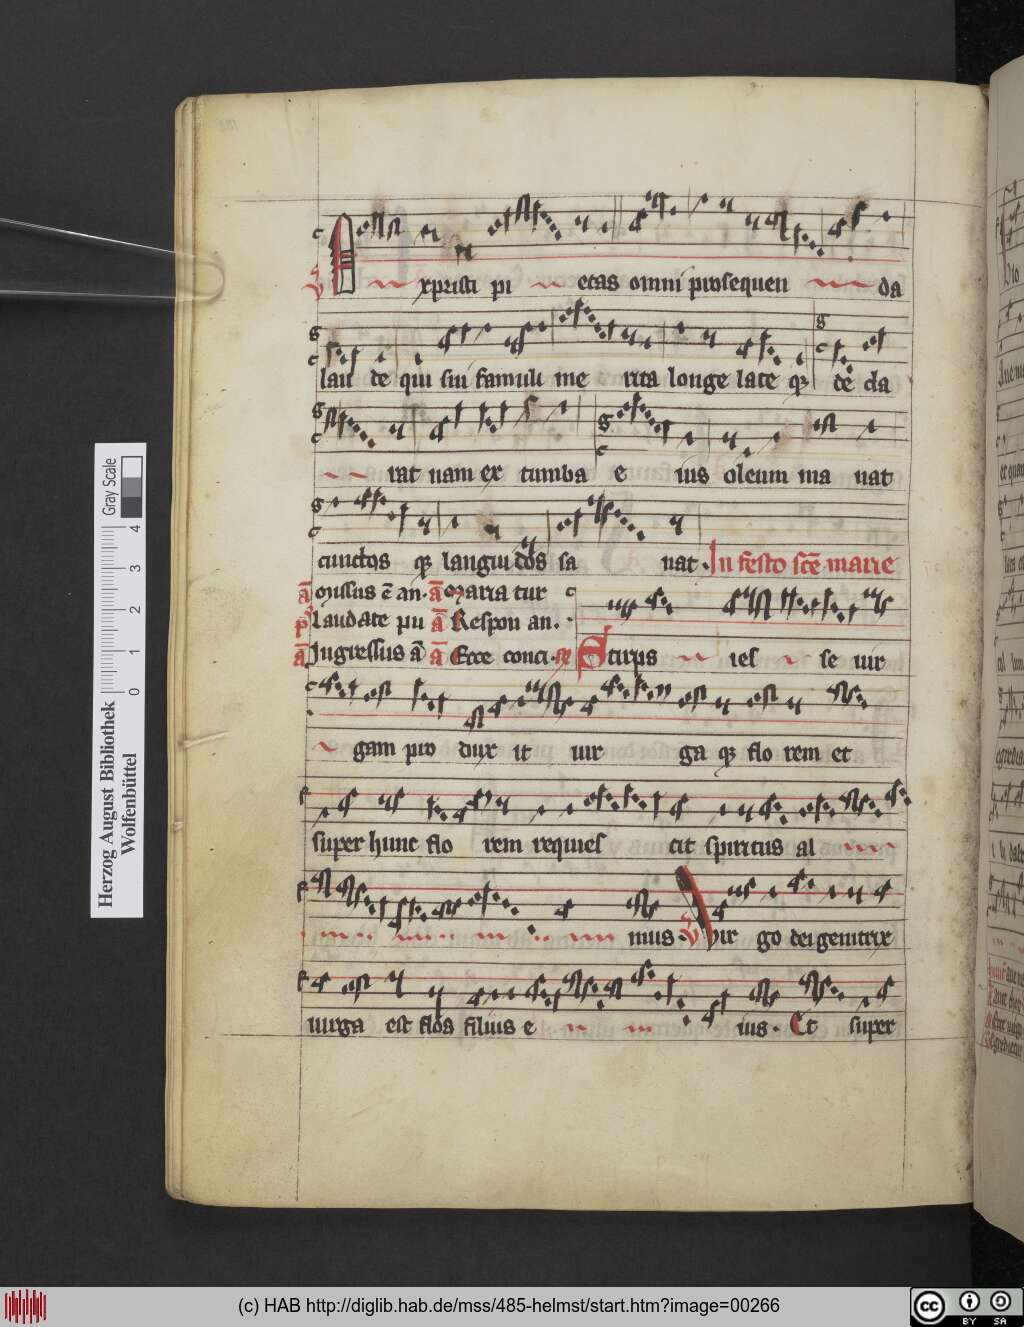 xpristi pi etas omni prosequen da
lau de qui sui famuli me rita longe late qꝫ de da
rat nam ex tumba e ius oleum ma nat
cunctos qꝫ langui dos sa nat. In festo scē marie
Missus ē an. ā Maria tur
Laudate pu ā Respon an.
ā Ingressus ā ā Ecce conci. Stirps ies se uir
gam pro dux it uir ga qꝫ flo rem et
super hunc flo rem requies cit spiritus al
mus. Vir go dei genitrix
uirga est flos filius e ius. Et super
Gray Scale
4
3
2
1
0
Herzog August Bibliothek
Wolfenbüttel
(c) HAB http://diglib.hab.de/mss/485-helmst/start.htm?image=00266
cc BY SA